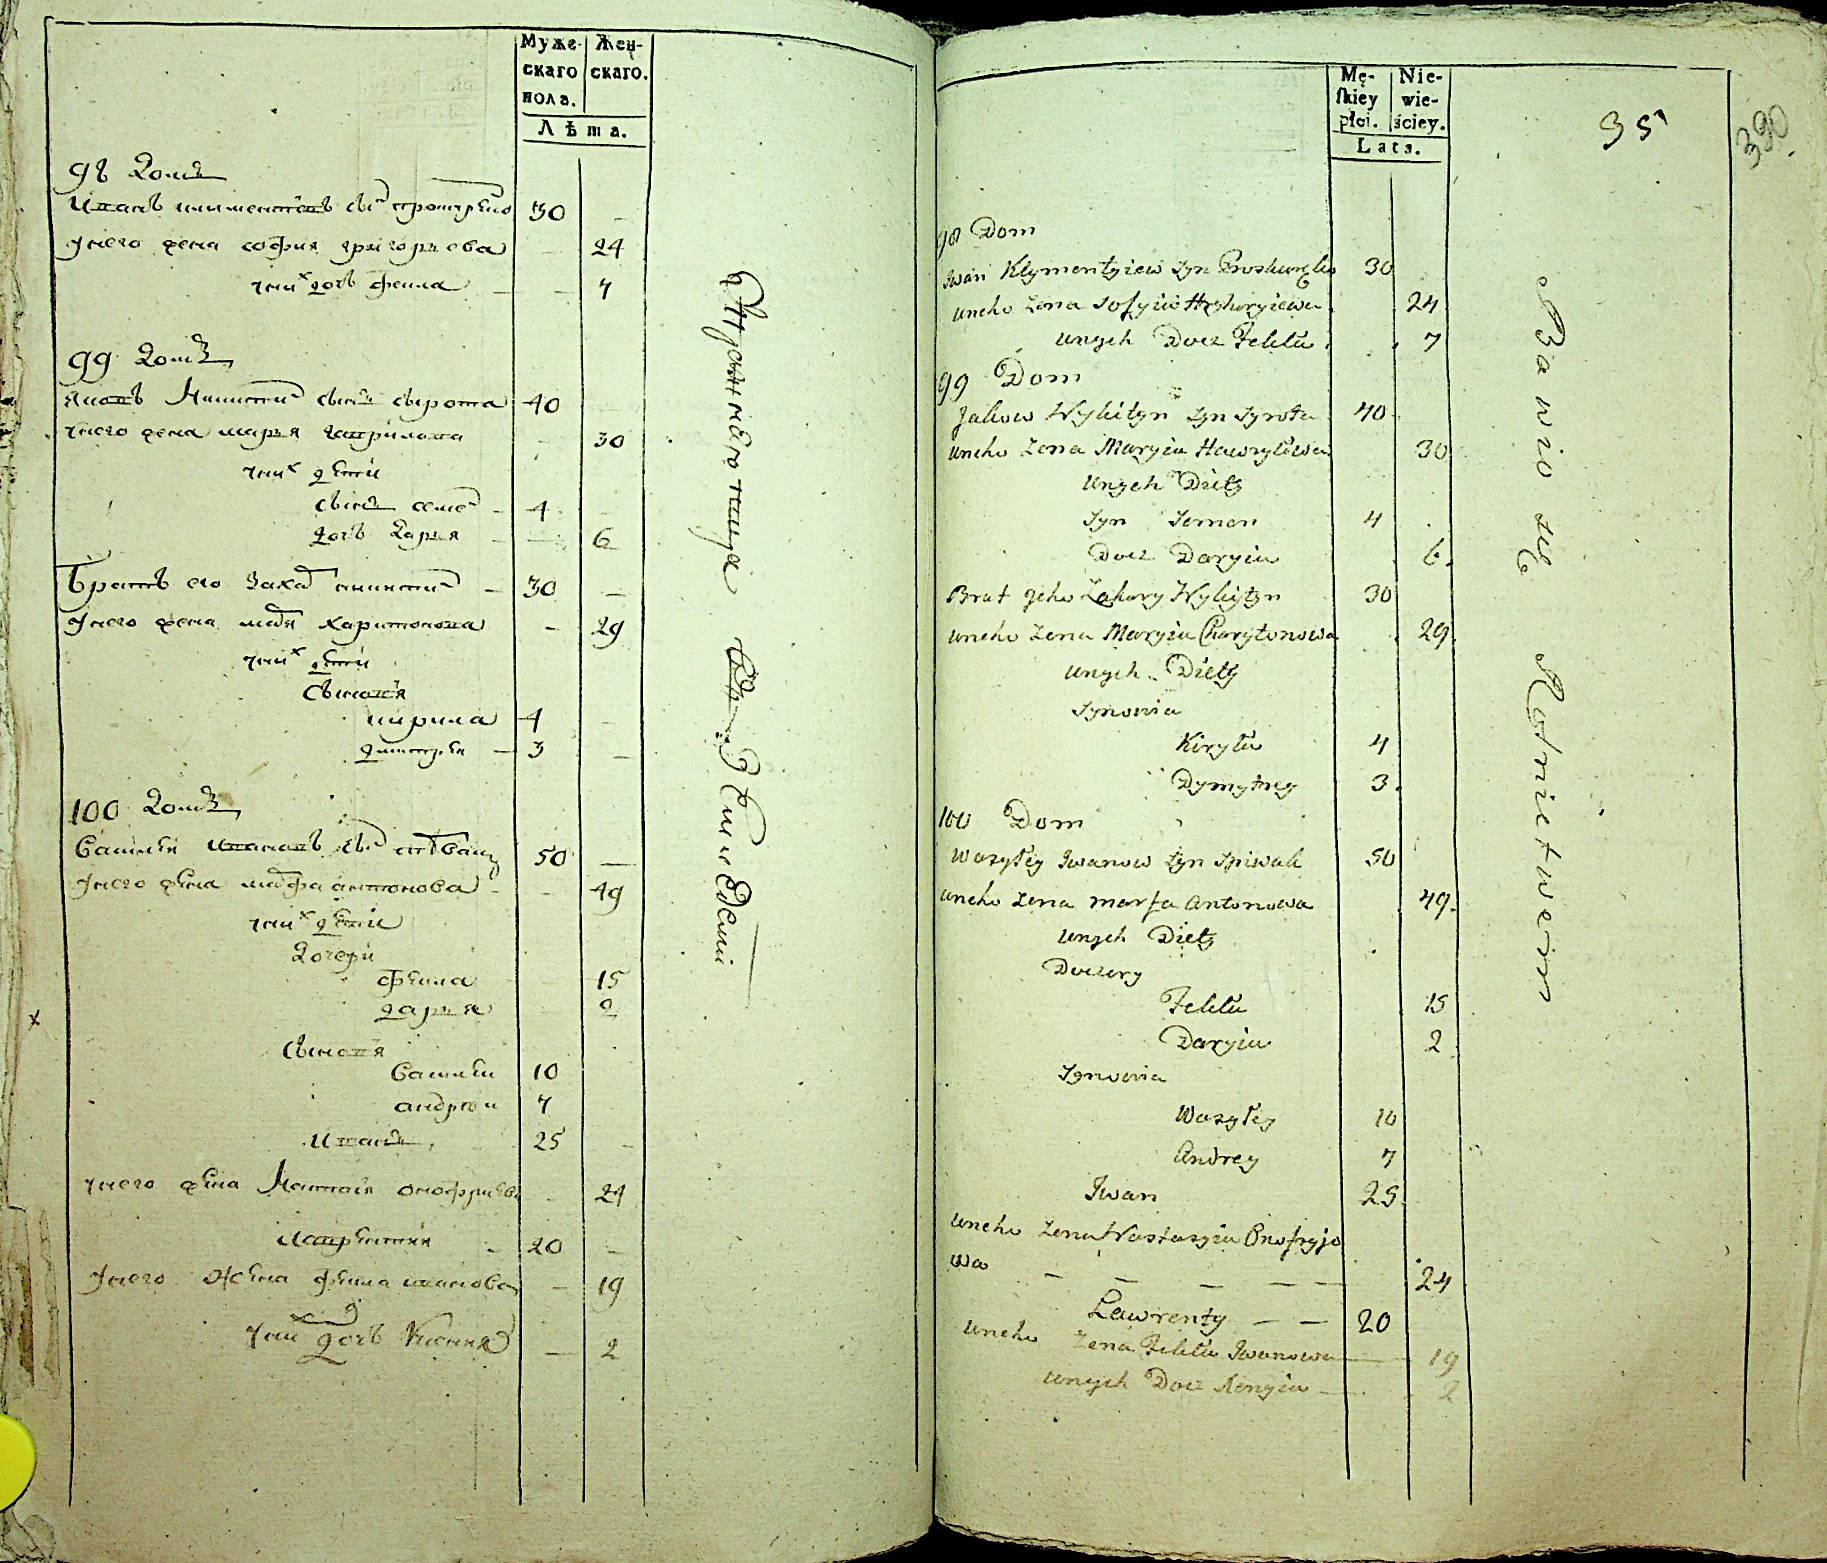 Муже-
скаго
пола.
Жен-
скаго.
Лѣта.
98 Домъ
Иванъ Климентіевъ сы[ 30
у него жена софия григорьева 24
у них дочь фекла 7
99 Домъ
Яковъ Никитин сынъ сырота 40
у него жена марья гаврилова 30
у них дѣти
сынъ семен 4
дочь Дарья 6
Братъ его Захар никитин 30
у него жена маря харитонова 29
у них дѣти
сыновя
кирила 4
дмитрей 3
100 Домъ
Василей Ивановъ сы[н] спѣвакъ 50
у него жена марфа антонова 49
у них дѣти
Дочери
фекла 15
дарья 2
сыновя
Василей 10
андреи 7
Иванъ 25
у него жена Настася онофриева 24
лаврентий 20
у него жена фекла иванова 19
у них дочь Ксения 2
Mę-
skiey
płci.
Nie-
wie-
ściey.
Lata.
35
390
98 Dom
Iwan Klymentyiew syn 30
uneho Zena Sofyia Hryhoryiewa 24
unych Docz Fekla 7
99 Dom
Jakow Nykityn syn Syrota 40
uneho Zena Maryia Hawryłowa 30
unych Diety
Syn Semen 4
Docz Daryia 6.
Brat Jeho Zahary Nykityn 30
uneho Zena Maryia Charytonowa 29.
unych Diety
Synowia
Kiryła 4
Dymytrey 3.
100 Dom
Wasyley Iwanow syn Spiwak 50
uneho Zena marfa Antonowa 49.
unych Diety
Doczery
Fekla 15
Daryia 2
Synowia
Wasyley 10
Andrey 7
Iwan 25
uneho Zena Nastazyia Onofryjo
wa 24
Lawrenty 20
uneho Zena Fekla Iwanowa 19
unych Docz Xenyia 2
Bawio się Rolnictwem